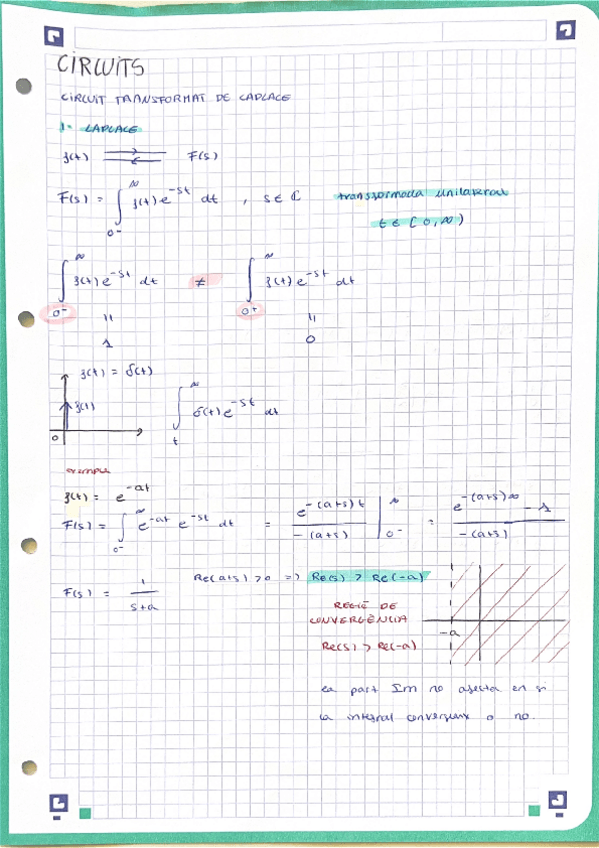 CIRCUITS
CIRCUIT TRANSFORMAT DE LAPLACE
1- LAPLACE
f(t) ⇄ F(s)
F(s) = ∫_{0⁻}^{∞} f(t) e^{-st} dt , s ∈ ℂ transformada unilateral
t ∈ [0, ∞)
∫_{0⁻}^{∞} f(t) e^{-st} dt ≠ ∫_{0⁺}^{∞} f(t) e^{-st} dt
" "
1 0
f(t) = δ(t)
f(t)
∫_{t}^{∞} δ(t) e^{-st} dt
0
exemple
f(t) = e^{-at}
F(s) = ∫_{0⁻}^{∞} e^{-at} e^{-st} dt = e^{-(a+s)t} / -(a+s) |_{0⁻}^{∞} = e^{-(a+s)∞} - 1 / -(a+s)
F(s) = 1 / s+a
Re(a+s) > 0 => Re(s) > Re(-a)
REGIÓ DE
CONVERGÈNCIA
Re(s) > Re(-a)
-a
la part Im no afecta en si
la integral convergeix o no.